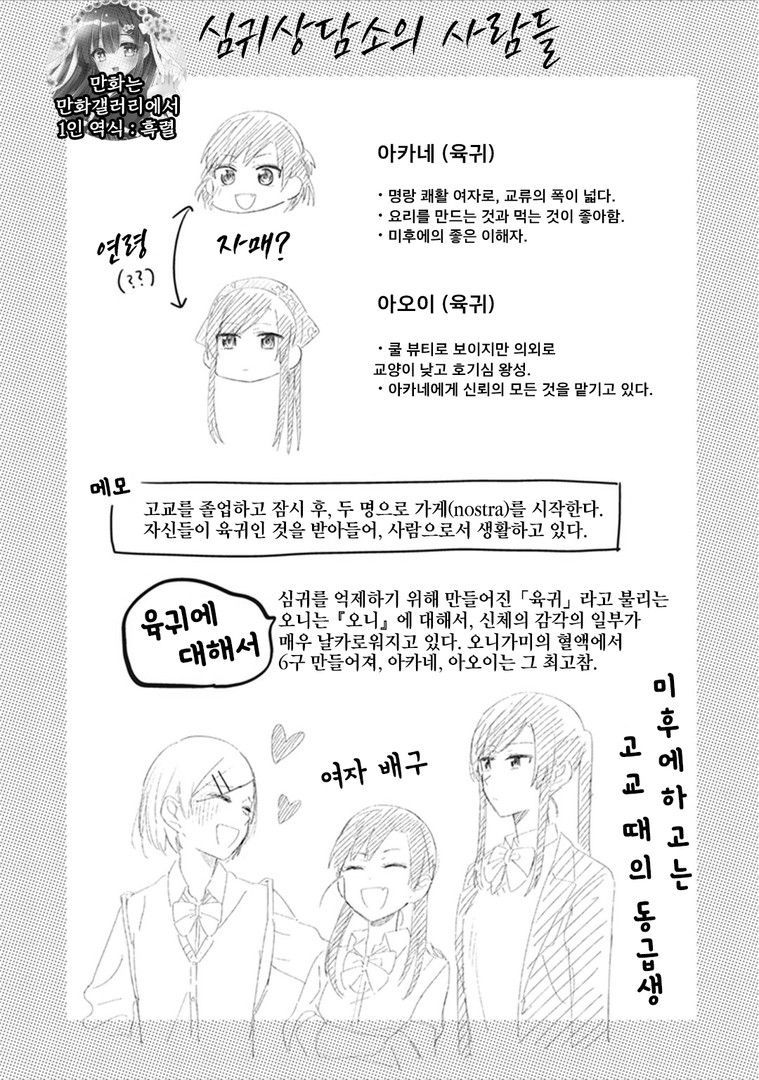 심귀상담소의 사람들
만화는
만화갤러리에서
1인 역식 : 흑렬
아카네 (육귀)
· 명랑 쾌활 여자로, 교류의 폭이 넓다.
· 요리를 만드는 것과 먹는 것이 좋아함.
· 미후에의 좋은 이해자.
연령
(??)
자매?
아오이 (육귀)
· 쿨 뷰티로 보이지만 의외로
교양이 낮고 호기심 왕성.
· 아카네에게 신뢰의 모든 것을 맡기고 있다.
메모
고교를 졸업하고 잠시 후, 두 명으로 가게(nostra)를 시작한다.
자신들이 육귀인 것을 받아들어, 사람으로서 생활하고 있다.
육귀에
대해서
심귀를 억제하기 위해 만들어진 「육귀」 라고 불리는
오니는 『오니』에 대해서, 신체의 감각의 일부가
매우 날카로워지고 있다. 오니가미의 혈액에서
6구 만들어져, 아카네, 아오이는 그 최고참.
여자 배구
미후에하고는
고교 때의 동급생